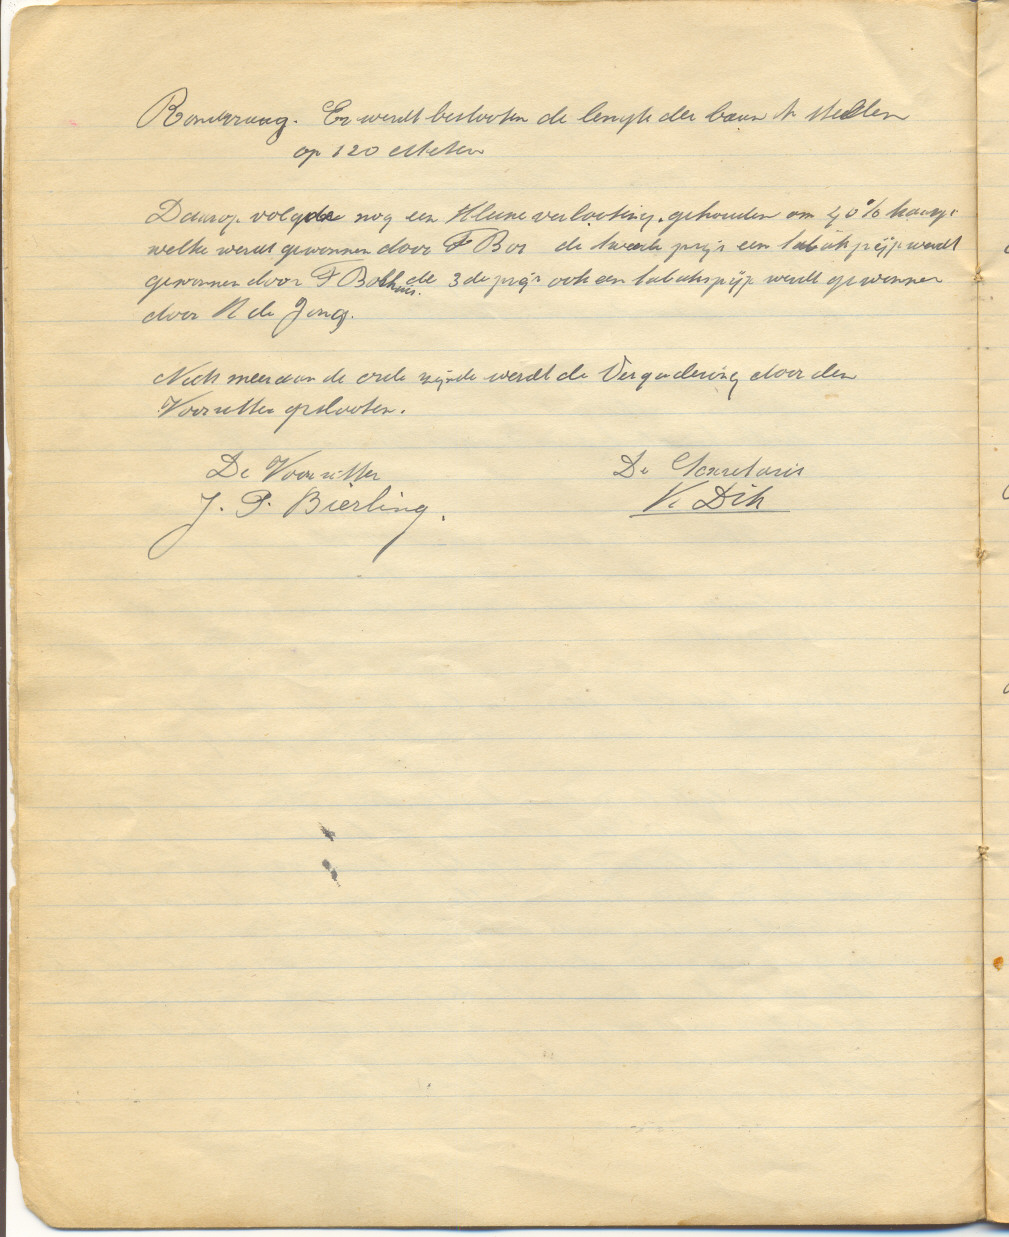 Rondvraag. Er werdt beslooten de lengte der baan te stellen
op 120 Meter
Daarop volgde nog een kleine verlooting. gehouden om 40% kaas
welke werdt gewonnen door F Bos de tweede prijs een tabakspijp werdt
gewonnen door F Bolhuis. de 3de prijs ook een tabakspijp werdt gewonnen
door K de Jong.
Niets meer aan de orde zijnde werdt de Vergadering door den
Voorzitter geslooten.
De Voorzitter De Secretaris
J. P. Bierling. K. Dik